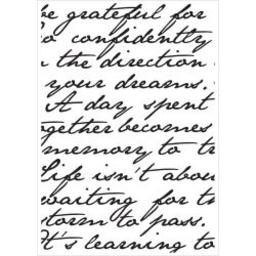 be grateful for
to confidently
n the direction
your dreams.
A day spent
ogether becomes
memory to tr
Life isn't abou
waiting for th
storm to pass.
It's learning to